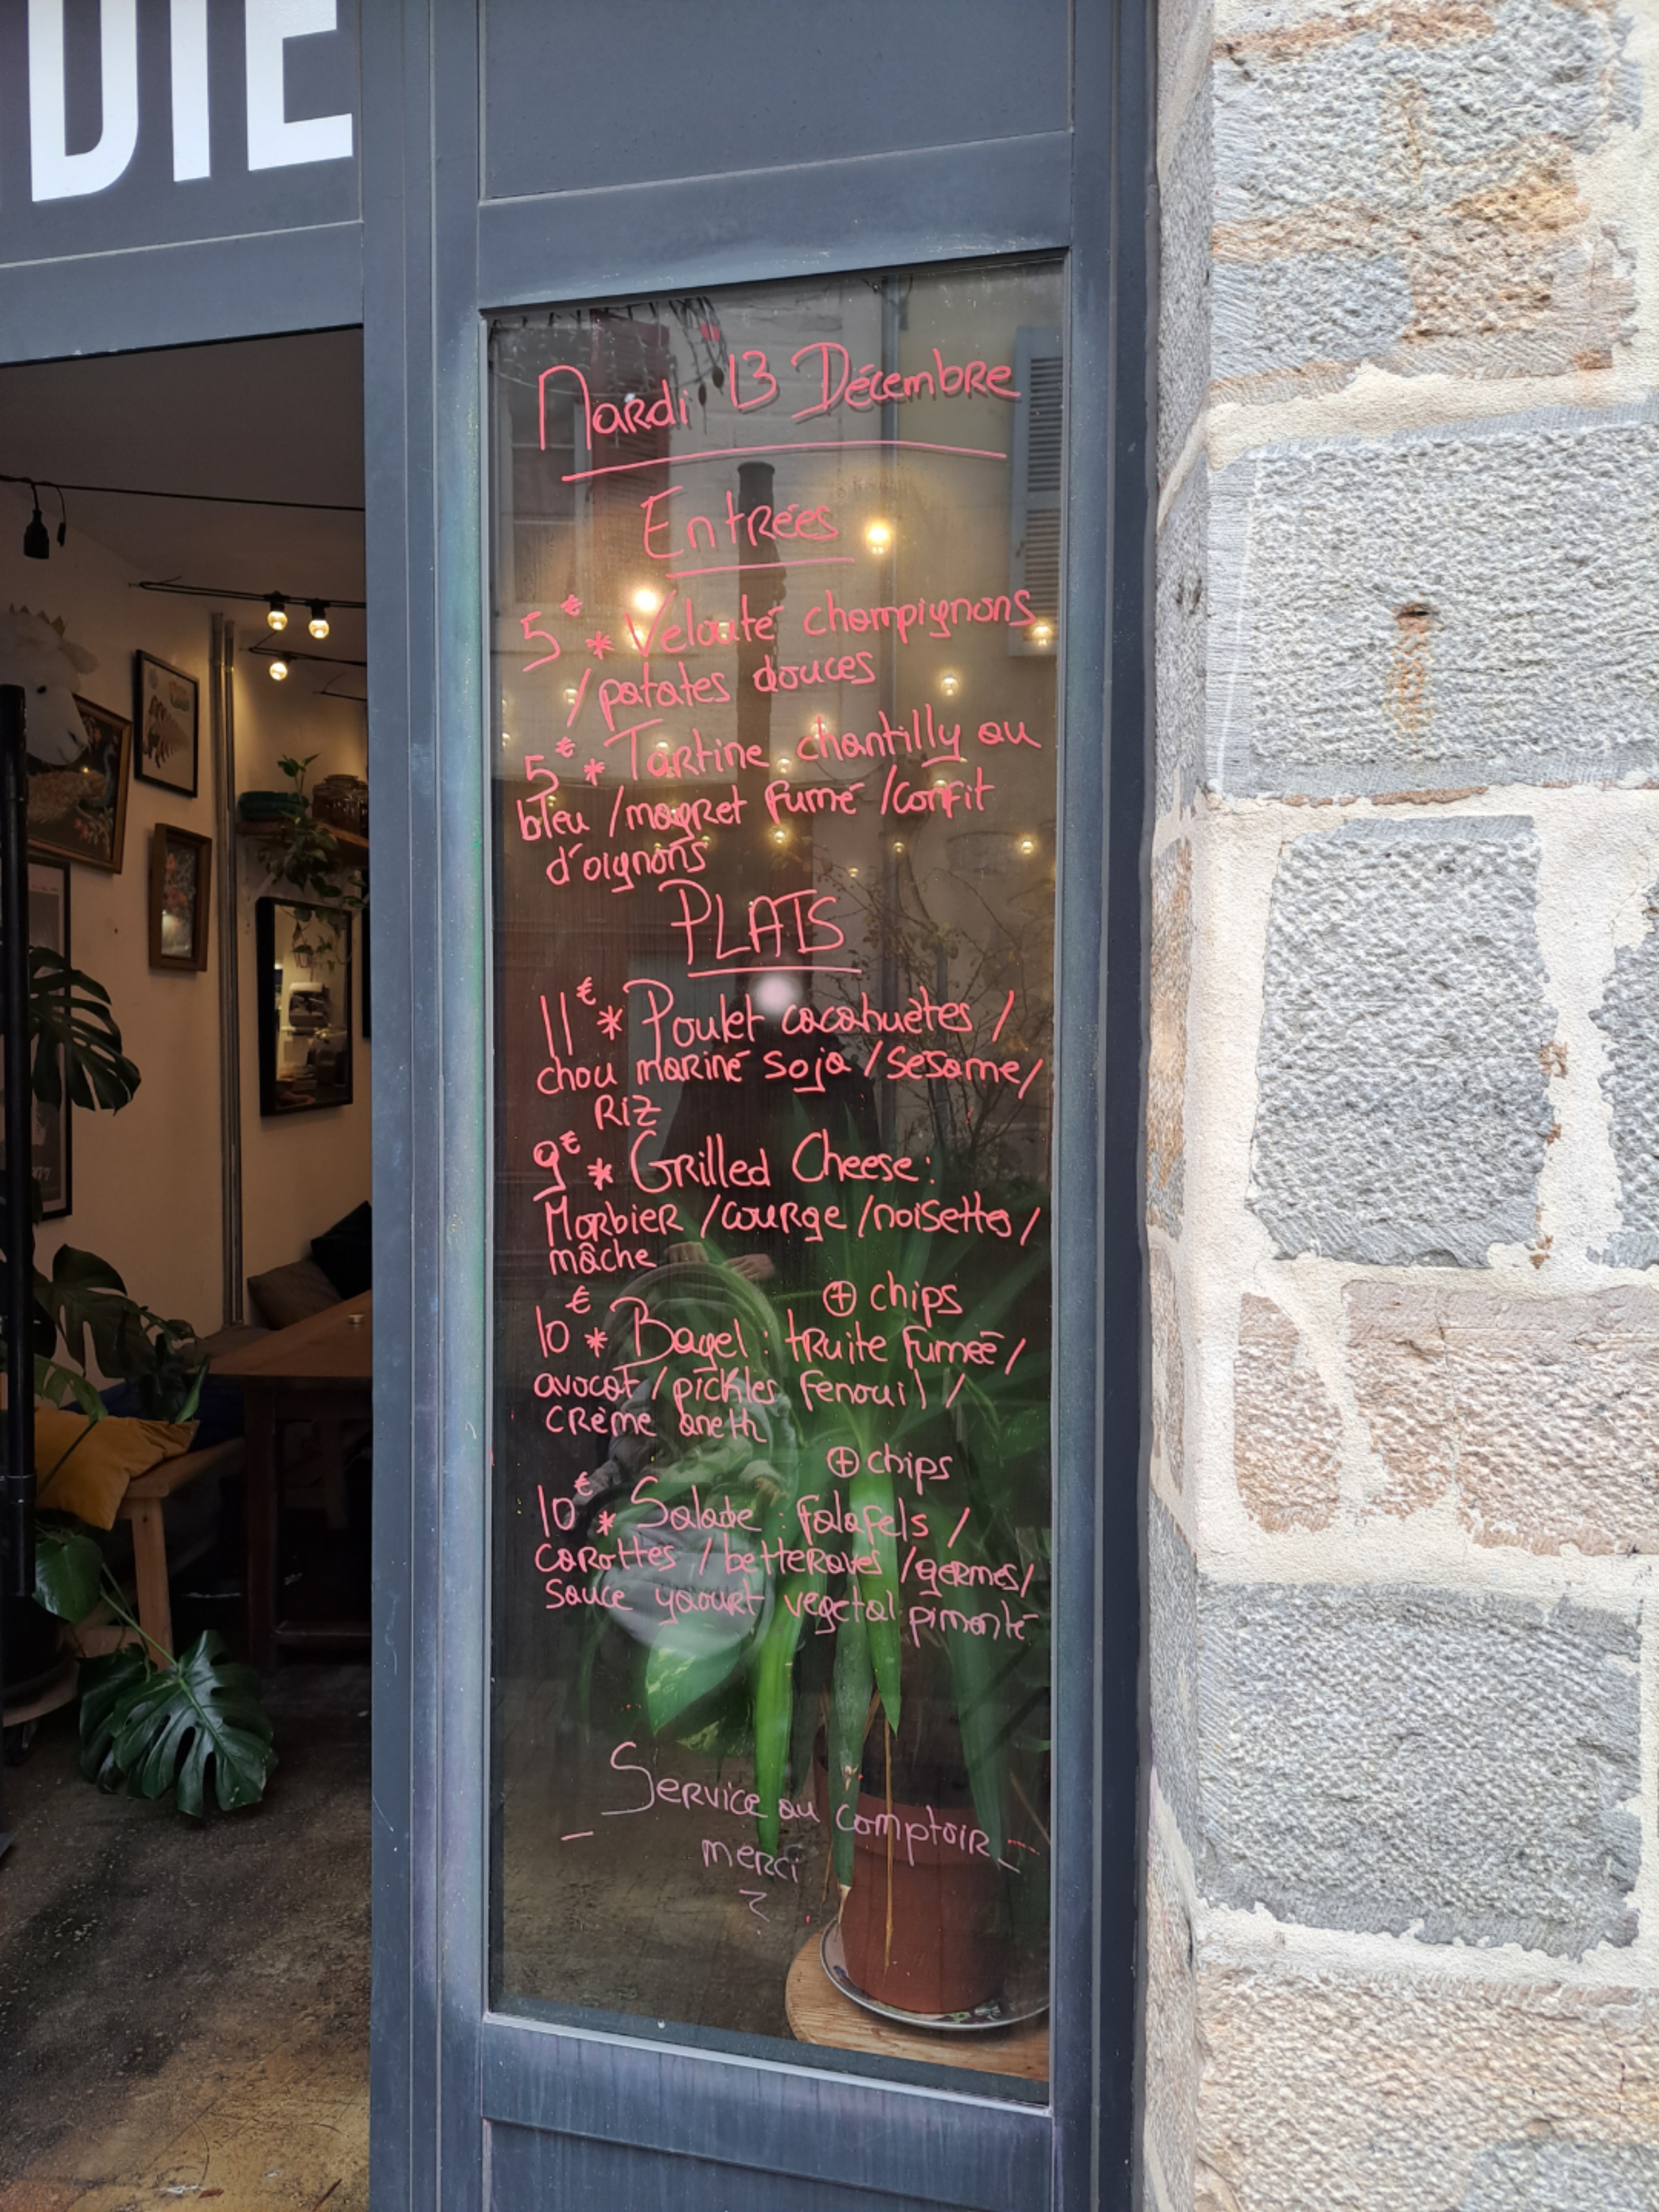 DIE
Mardi 13 Décembre
Entrées
5€ * Velouté champignons
/patates douces
5€ * Tartine chantilly au
bleu /magret fumé /confit
d'oignons
PLATS
11€ * Poulet cacahuètes /
chou mariné soja /sesame/
Riz
9€ * Grilled Cheese:
Morbier /courge /noisettes/
mâche
⊕ chips
10€ * Bagel : truite fumée /
avocat / pickles fenouil /
crème aneth
⊕ chips
10€ * Salade : falafels /
carottes / betteraves /germes/
sauce yaourt vegetal pimenté
Service au comptoir
merci